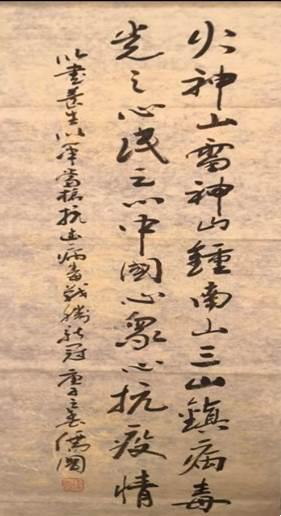 火神山雷神山鍾南山三山鎮病毒
党之心民之心中國心眾心抗疫情
以書養生以筆當槍抗击病毒战勝新冠 庚子春儒